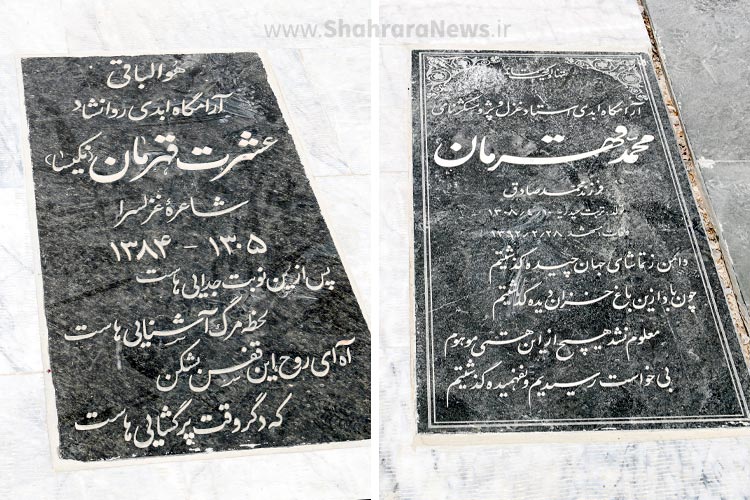 www.ShahraraNews.ir
هوالباقی
آرامگاه ابدی روانشاد
عشرت قهرمان (نکیسا)
شاعرهٔ غزلسرا
۱۳۰۵ - ۱۳۸۴
پس از این نوبت جدایی هاست
لحظهٔ مرگ آشنایی هاست
آه ای روح، این قفس بشکن
که دگر وقت پرگشایی هاست
آرامگاه ابدی استاد غزل و پژوهشگر
محمد قهرمان
فرزند محمدصادق
تولد تربت حیدریه ۱۳۰۸/۴/۱۰
وفات مشهد ۱۳۹۲/۲/۲۸
دامن ز تماشای جهان چیده گذشتیم
چون باد از این باغ خزان دیده گذشتیم
معلوم نشد هیچ از این هستی موهوم
بی خواست رسیدیم و نفهمیده گذشتیم